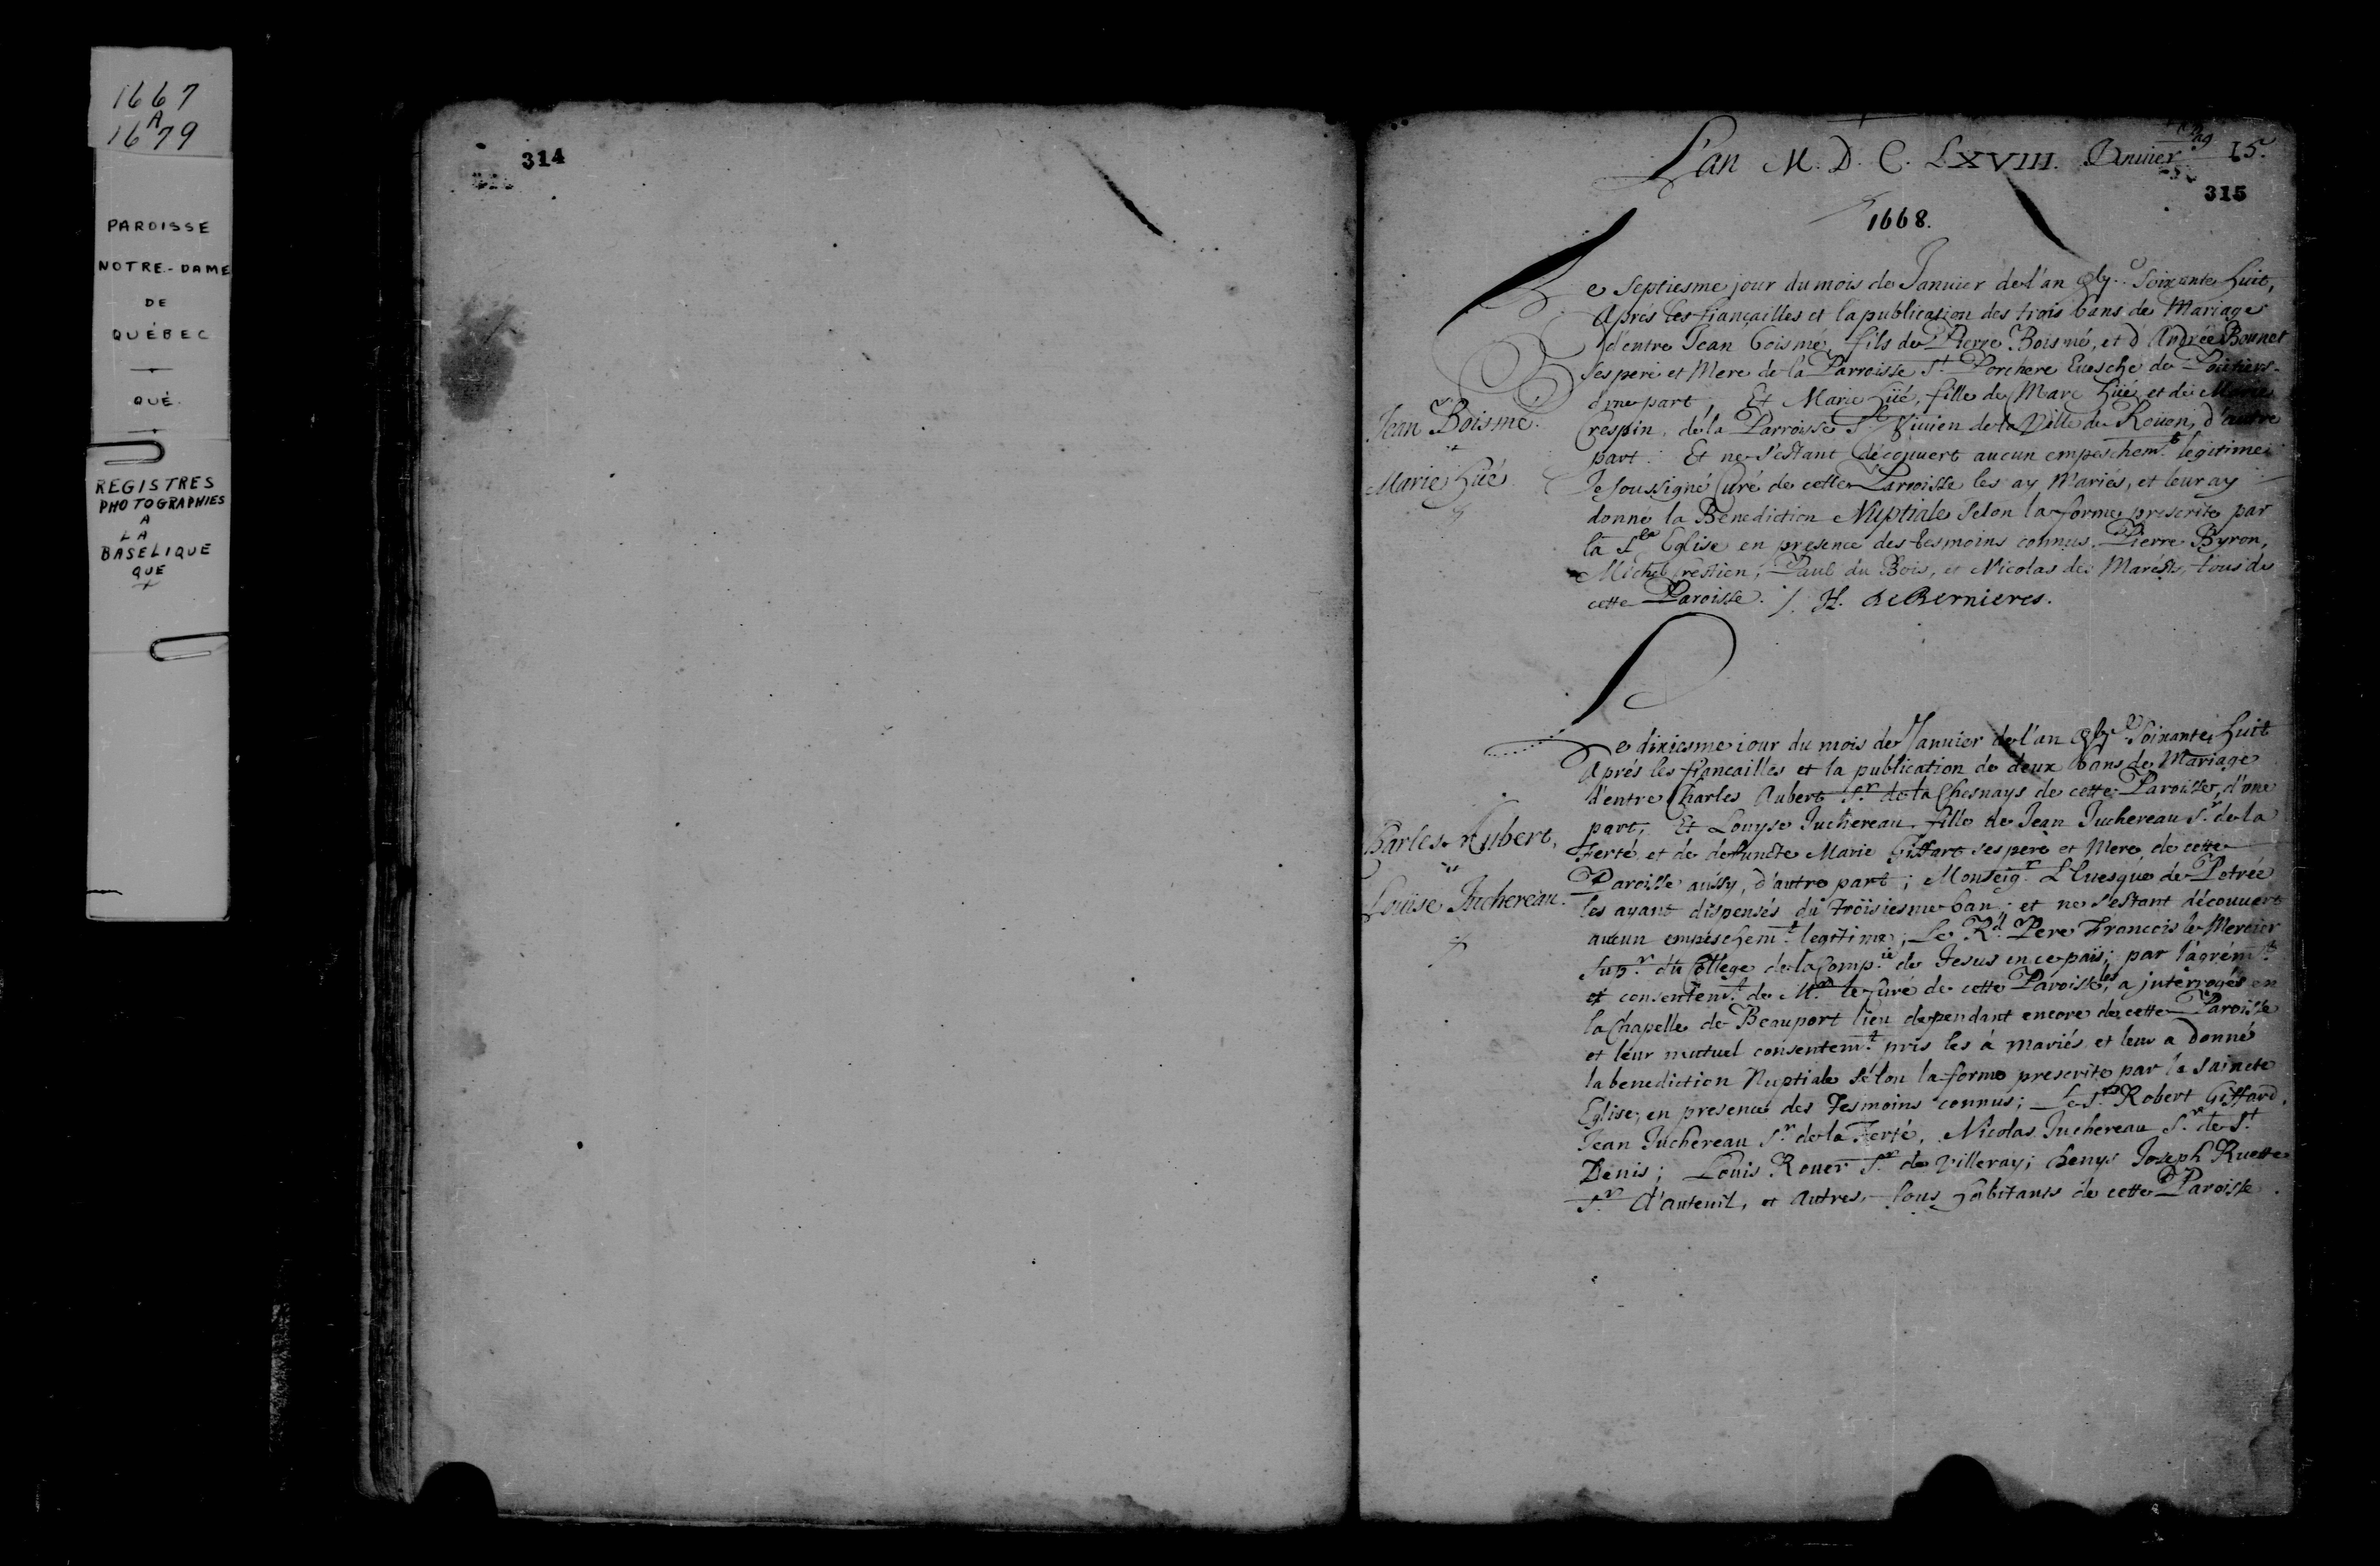 1667
A
1679
PAROISSE
NOTRE-DAME
DE
QUÉBEC
QUÉ.
REGISTRES
PHOTOGRAPHIES
A
LA
BASELIQUE
QUE
314
L'an M. D. C. LXVIII. Januier 15.
315
1668.
Le Septiesme jour du mois de Januier de l'an Soixante huit,
Aprés les fiançailles et la publication des trois bans de Mariage
d'entre Jean boismé, fils de Pierre Boismé, et d'Andrée Bonnet
ses pere et Mere de la Parroisse St. Porchere Euesché de Poitiers
d'une part, Et Marie hüé, fille de Marc hüé et de Marie
Crespin, de la Parroisse St Viuien de la Ville de Roüen, d'autre
part: Et ne s'estant découuert aucun empeschemt. legitime
Je soussigné Curé de cette Parroisse les ay Mariés, et leur ay
donné la Benediction Nuptiale selon la forme prescrite par
la Ste Eglise en presence des tesmoins connus. Pierre Byron,
Michel Crestien, Paul du Bois, et Nicolas des Marests, tous de
cette Paroisse. /. H. de Bernieres.
Jean Boismé.
et
Marie Hüé
Le dixiesme iour du mois de Januier de l'an Soixante, huit
Aprés les fiancailles et la publication de deux bans de Mariage
d'entre Charles Aubert Sr. de la Chesnays de cette Paroisse, d'une
part, Et Louyse Juchereau fille de Jean Juchereau Sr. de la
Ferté et de deffuncte Marie Giffart ses pere et Mere, de cette
Paroisse aussy, d'autre part; Monseigr. L'Euesque de Petrée
les ayant dispensés du troisiesme ban; et ne s'estant découuert
aucun empeschemt. legitime; Le Rd. Pere Francois le Mercier
Supr. du College de la Compie. de Jesus en ce païs; par l'agrémt.
et consentemt. de Mr. le Curé de cette Paroisse, les a jnterrogés en
la Chapelle de Beauport lieu dependant encore de cette Paroisse
et leur mutuel consentemt. pris les à mariés et leur a donné
la benediction Nuptiale selon la forme prescrite par la Saincte
Eglise, en presence des Tesmoins connus; Le Sr. Robert Giffard,
Jean Juchereau Sr. de la Ferté, Nicolas Juchereau Sr. de St.
Denis; Louis Rouer Sr. de Villeray; Denys Joseph Ruette
Sr. d'Auteuil, et Autres, tous habitants de cette Paroisse.
Charles Aubert,
et
Louïse Juchereau.